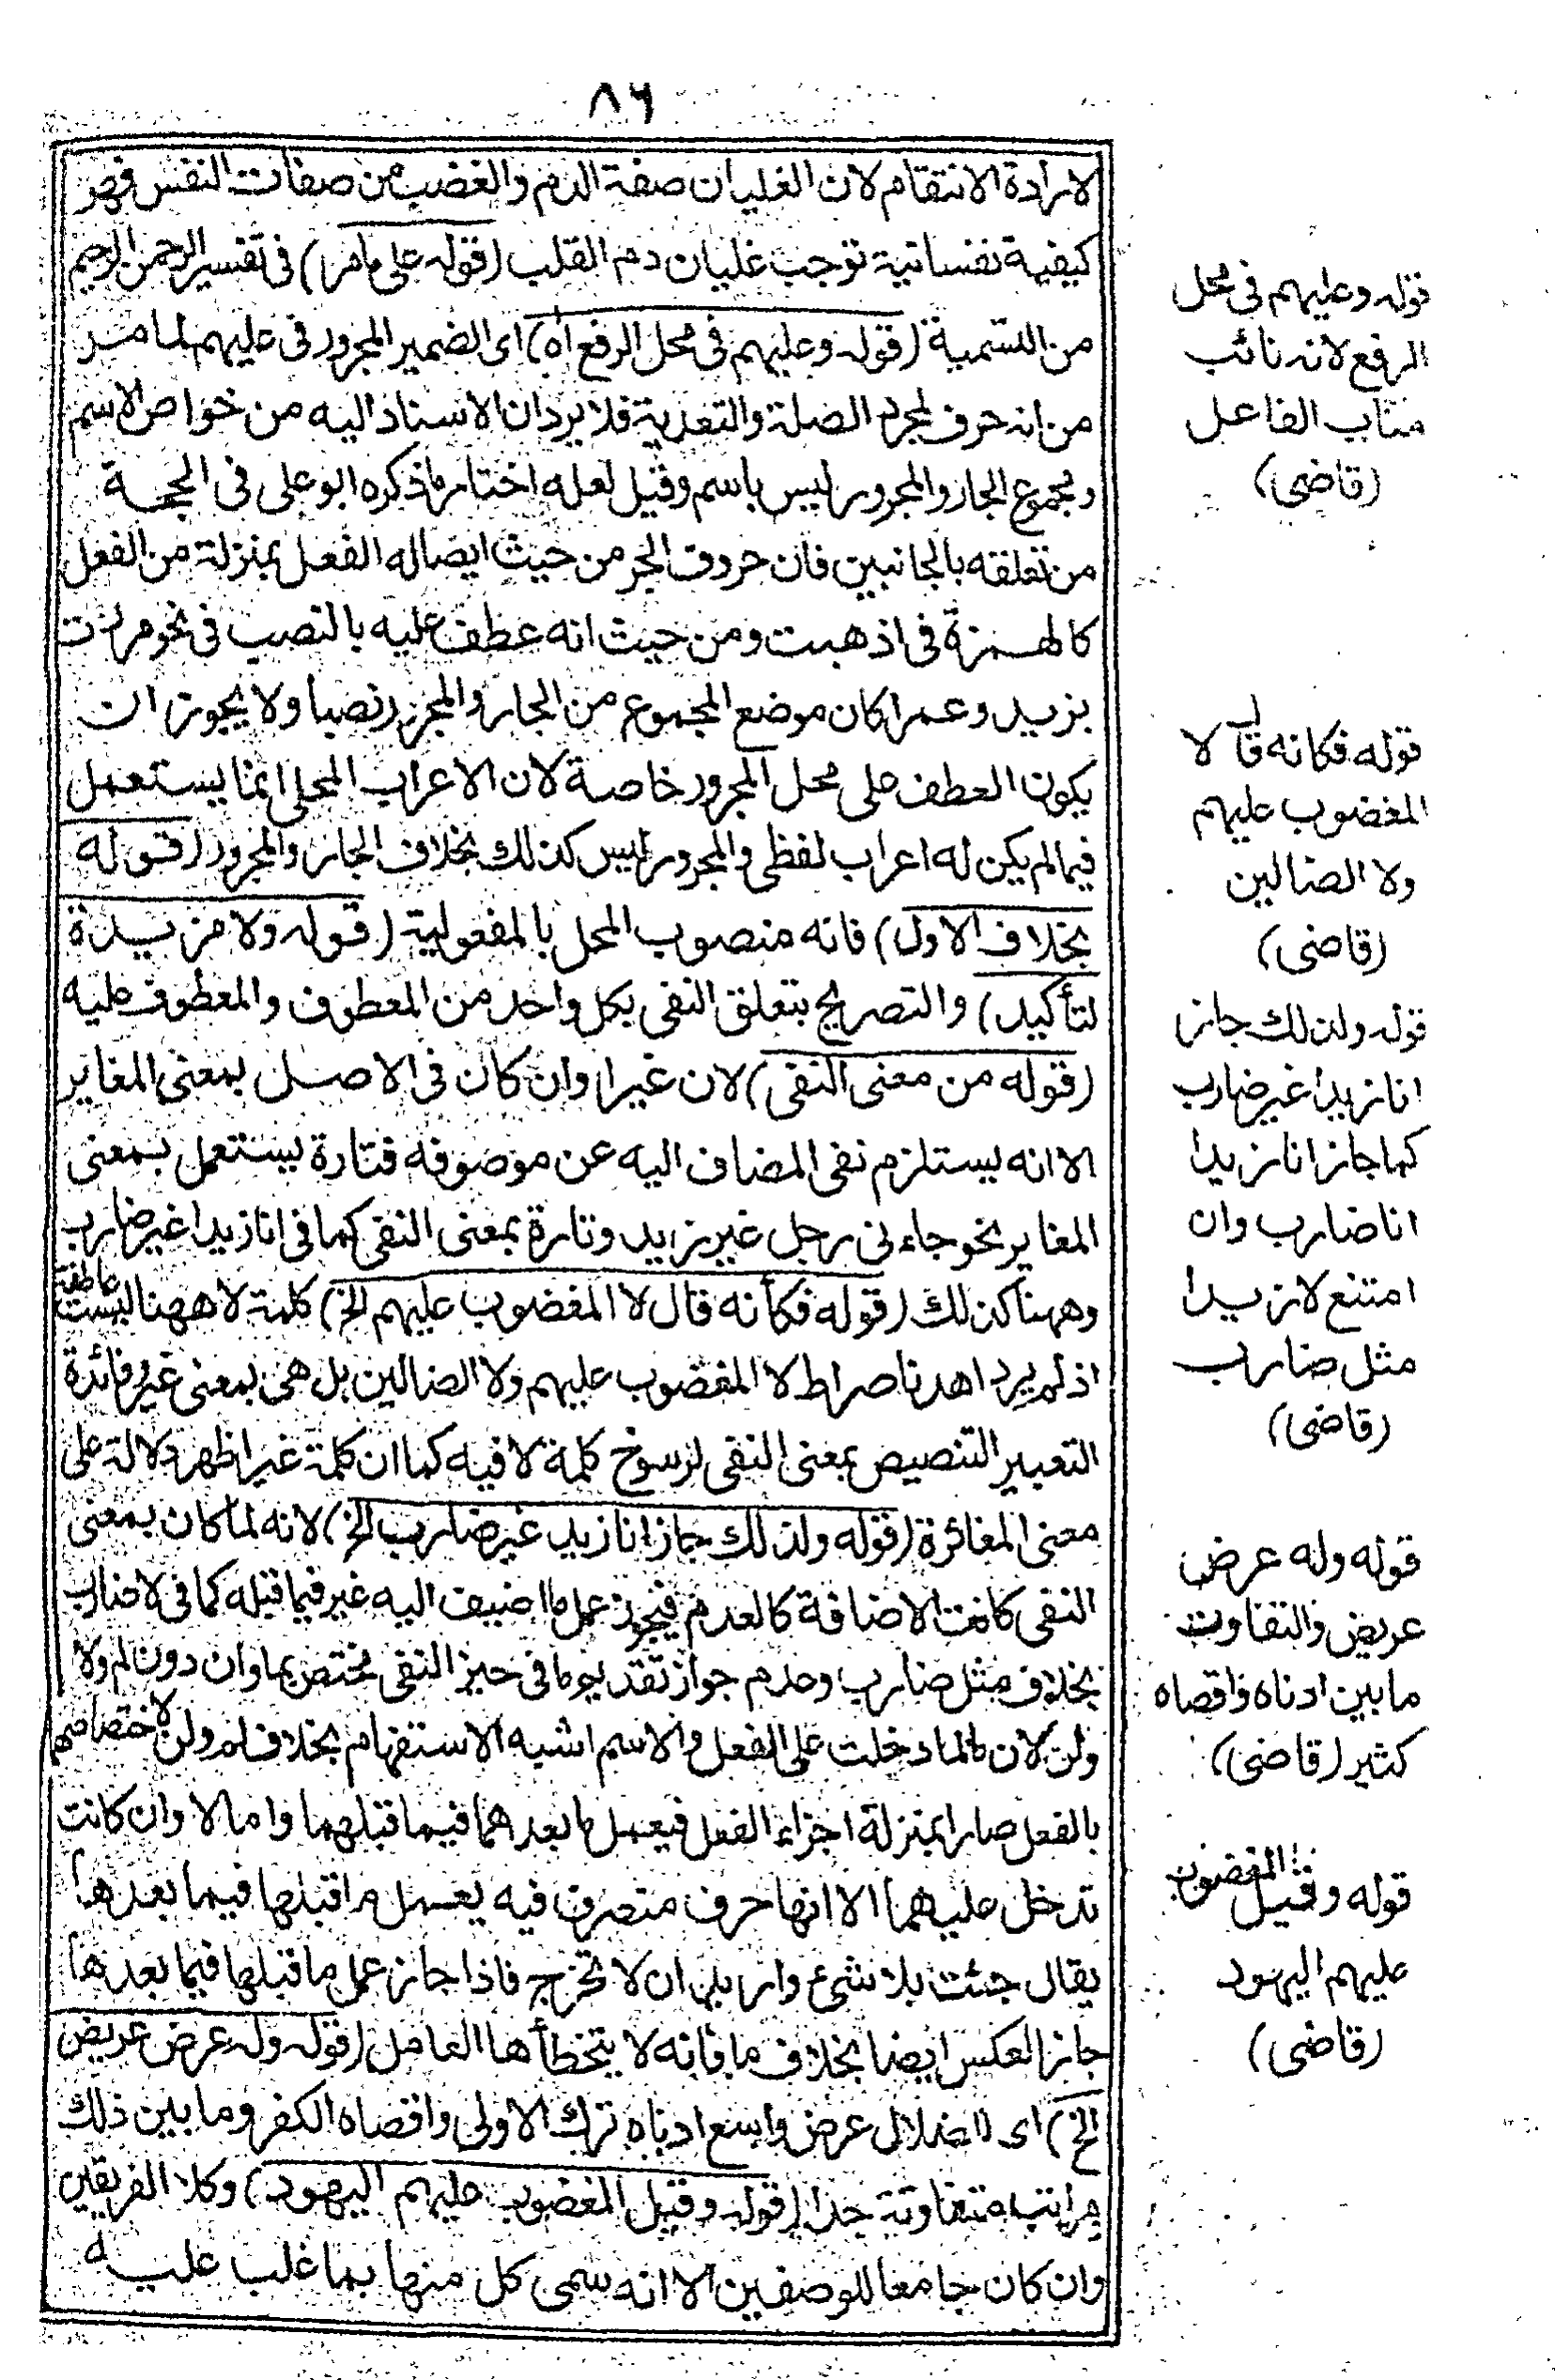 ٨٦
لارادة الانتقام لان الغليان صفة الدم والغضب من صفات النفس فهو
كيفية نفسانية توجب غليان دم القلب (قوله على مامر) فى تفسير الرحمن الرحيم
من التسمية (قوله وعليهم فى محل الرفع اه) اى الضمير المجرور فى عليهم لما مر
من انه حرف لمجرد الصلة والتعدية فلا يرد ان الاسناد اليه من خواص الاسم
ومجموع الجار والمجرور ليس باسم وقيل لعله اختار ما ذكره ابو على فى الحجة
من تعلقه بالجانبين فان حروف الجر من حيث ايصاله الفعل بمنزلة من الفعل
كالهمزة فى اذهبت ومن حيث انه عطف عليه بالنصب فى نحو مررت
بزيد وعمرا كان موضع المجموع من الجار والمجرور نصبا ولا يجوز ان
يكون العطف على محل المجرور خاصة لان الاعراب المحلى انما يستعمل
فيما لم يكن له اعراب لفظى والمجرور ليس كذلك بخلاف الجار والمجرور (قوله
بخلاف الاول) فانه منصوب المحل بالمفعولية (قوله ولا مزيدة
لتأكيد) والتصريح بتعلق النفى بكل واحد من المعطوف والمعطوف عليه
(قوله من معنى النفى) لان غيرا وان كان فى الاصل بمعنى المغاير
الا انه يستلزم نفى المضاف اليه عن موصوفه فتارة يستعمل بمعنى
المغاير نحو جاءنى رجل غير زيد وتارة بمعنى النفى كما فى انا زيدا غير ضارب
وههنا كذلك (قوله فكأنه قال لا المغضوب عليهم الخ) كلمة لا ههنا ليست عاطفة
اذ لم يرد اهدنا صراط لا المغضوب عليهم ولا الضالين بل هى بمعنى غير وفائدة
التعبير التنصيص بمعنى النفى لرسوخ كلمة لا فيه كما ان كلمة غير اظهر دلالة على
معنى المغائرة (قوله ولذلك جاز انا زيد غير ضارب الخ) لانه لما كان بمعنى
النفى كانت الاضافة كالعدم فيجوز عمل ما اضيف اليه غير فيما قبله كما فى لا ضارب
بخلاف مثل ضارب وعدم جواز تقديم ما فى حيز النفى مختص بما وان دون لم ولا
ولن لان ما لما دخلت على الفعل والاسم اشبه الاستفهام بخلاف لم ولن لاختصاصهما
بالفعل صارا بمنزلة اجزاء الفعل فيعمل ما بعدهما فيما قبلهما واما لا وان كانت
تدخل عليهما الا انها حرف متصرف فيه يعمل ما قبلها فيما بعدها
يقال جئت بلا شىء واريد ان لا تخرج فاذا جاز عمل ما قبلها فيما بعدها
جاز العكس ايضا بخلاف ما فانه لا يتخطأها العامل (قوله وله عرض عريض
الخ) اى للضلال عرض واسع ادناه ترك الاولى واقصاه الكفر وما بين ذلك
مراتب متفاوتة جدا (قوله وقيل المغضوب عليهم اليهود) وكلا الفريقين
وان كان جامعا للوصفين الا انه سمى كل منها بما غلب عليه
قوله وعليهم فى محل
الرفع لانه نائب
مناب الفاعل
(قاضى)
قوله فكانه قال لا
المغضوب عليهم
ولا الضالين
(قاضى)
قوله ولذلك جاز
انا زيدا غير ضارب
كما جاز انا زيدا
انا ضارب وان
امتنع لا زيدا
مثل ضارب
(قاضى)
قوله وله عرض
عريض والتفاوت
ما بين ادناه واقصاه
كثير (قاضى)
قوله وقيل المغضوب
عليهم اليهود
(قاضى)